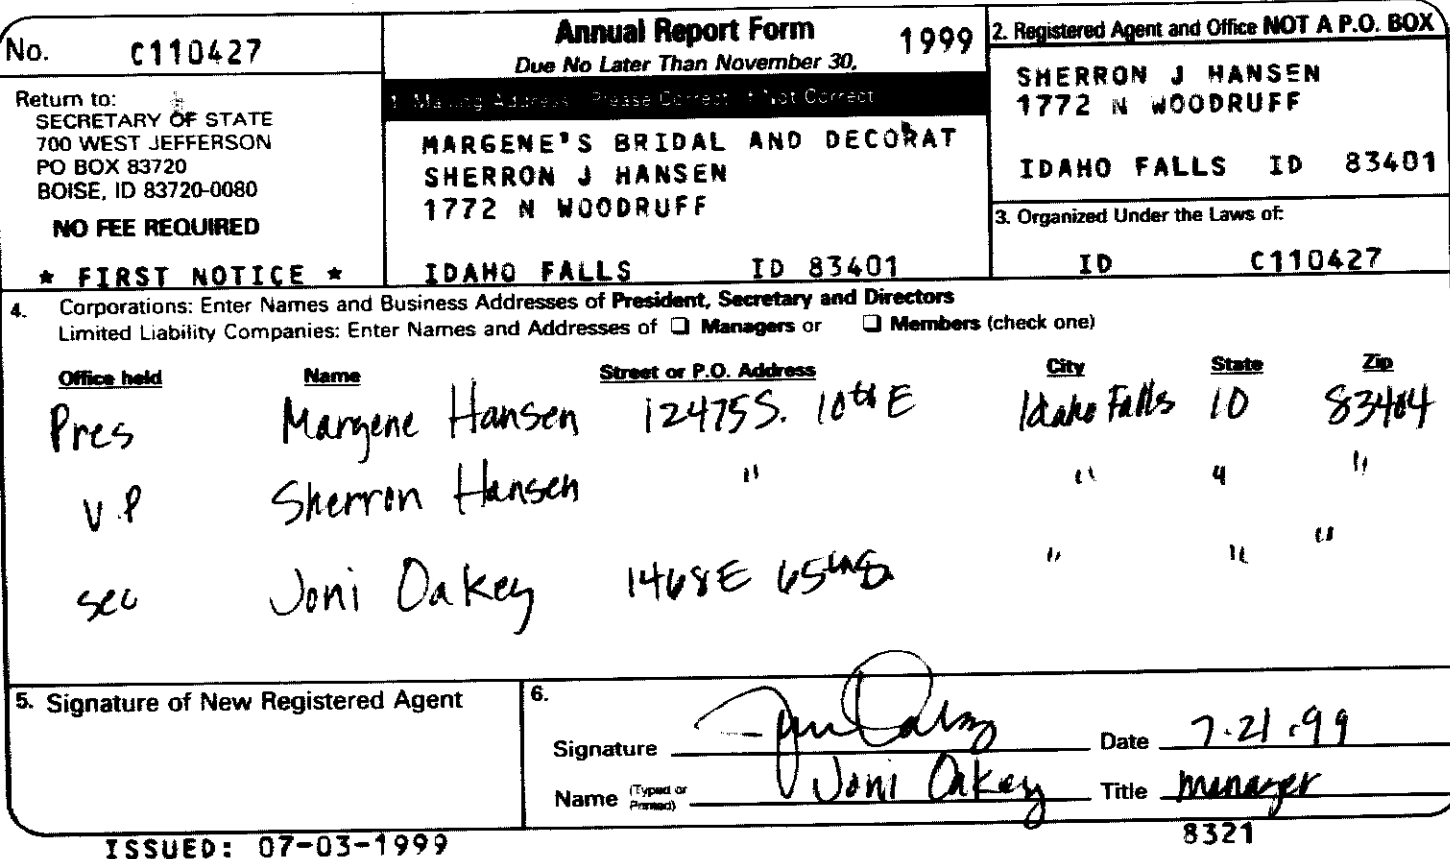 No. C110427
Return to:
SECRETARY OF STATE
700 WEST JEFFERSON
PO BOX 83720
BOISE, ID 83720-0080
NO FEE REQUIRED
* FIRST NOTICE *
Annual Report Form 1999
Due No Later Than November 30,
1. Mailing Address - Please Correct If Not Correct
MARGENE'S BRIDAL AND DECORAT
SHERRON J HANSEN
1772 N WOODRUFF
IDAHO FALLS ID 83401
2. Registered Agent and Office NOT A P.O. BOX
SHERRON J HANSEN
1772 N WOODRUFF
IDAHO FALLS ID 83401
3. Organized Under the Laws of:
ID C110427
4. Corporations: Enter Names and Business Addresses of President, Secretary and Directors
Limited Liability Companies: Enter Names and Addresses of ☐ Managers or ☐ Members (check one)
Office held Name Street or P.O. Address City State Zip
Pres Margene Hansen 12475 S. 10th E Idaho Falls ID 83404
V.P Sherron Hansen " " " "
sec Joni Oakey 1468 E " " "
5. Signature of New Registered Agent
6.
Signature Joni Oakey Date 7.21.99
Name (Typed or Printed) Joni Oakey Title manager
ISSUED: 07-03-1999
8321